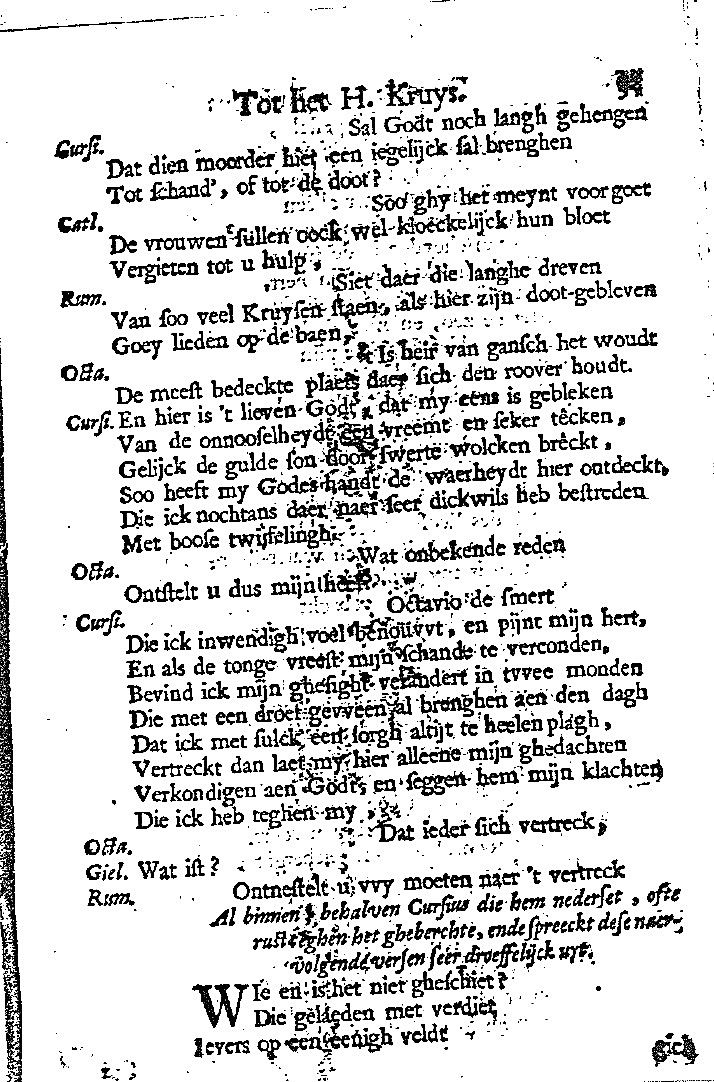 Tot het H. Kruys.
Sal Godt noch langh gehengen
Cursi.
Dat dien moorder hier een iegelijck sal brenghen
Tot schand', of tot de doot?
Soo ghy het meynt voor goet
Catl.
De vrouwen sullen oock wel kloeckelijck hun bloet
Vergieten tot u hulp,
Siet daer die langhe dreven
Rum.
Van soo veel Kruysen staen, als hier zijn doot-gebleven
Goey lieden op de baen,
Is heir van gansch het woudt
Octa.
De meest bedeckte plaets daer sich den roover houdt.
Cursi. En hier is 't lieven Godt, dat my eens is gebleken
Van de onnooselheyde een vreemt en seker têcken,
Gelijck de gulde son door swerte wolcken brêckt,
Soo heeft my Godes handt de waerheydt hier ontdeckt,
Die ick nochtans daer naer seer dickwils heb bestreden
Met boose twijfelingh.
Wat onbekende reden
Octa.
Ontstelt u dus mijn
Octavio de smert
Cursi.
Die ick inwendigh voel benouvvt, en pijnt mijn hert,
En als de tonge vreest mijn schande te verconden,
Bevind ick mijn ghesight verandert in tvvee monden
Die met een droef gevveen al brenghen aen den dagh
Dat ick met sulck een sorgh altijt te heelen plagh,
Vertreckt dan laet my hier alleene mijn ghedachten
Verkondigen aen Godt, en seggen hem mijn klachten
Die ick heb teghen my
Dat ieder sich vertreck,
Octa.
Giel. Wat ist?
Rum. Ontnestelt u, vvy moeten naer 't vertreck
Al binnen, behalven Cursius die hem nederset, ofte
rust teghen het gheberchte, ende spreeckt dese naer-
volgende versen seer droeffelijck uyt.
WIe en is het niet gheschiet?
Die geladen met verdiet
Ievers op een eenigh veldt